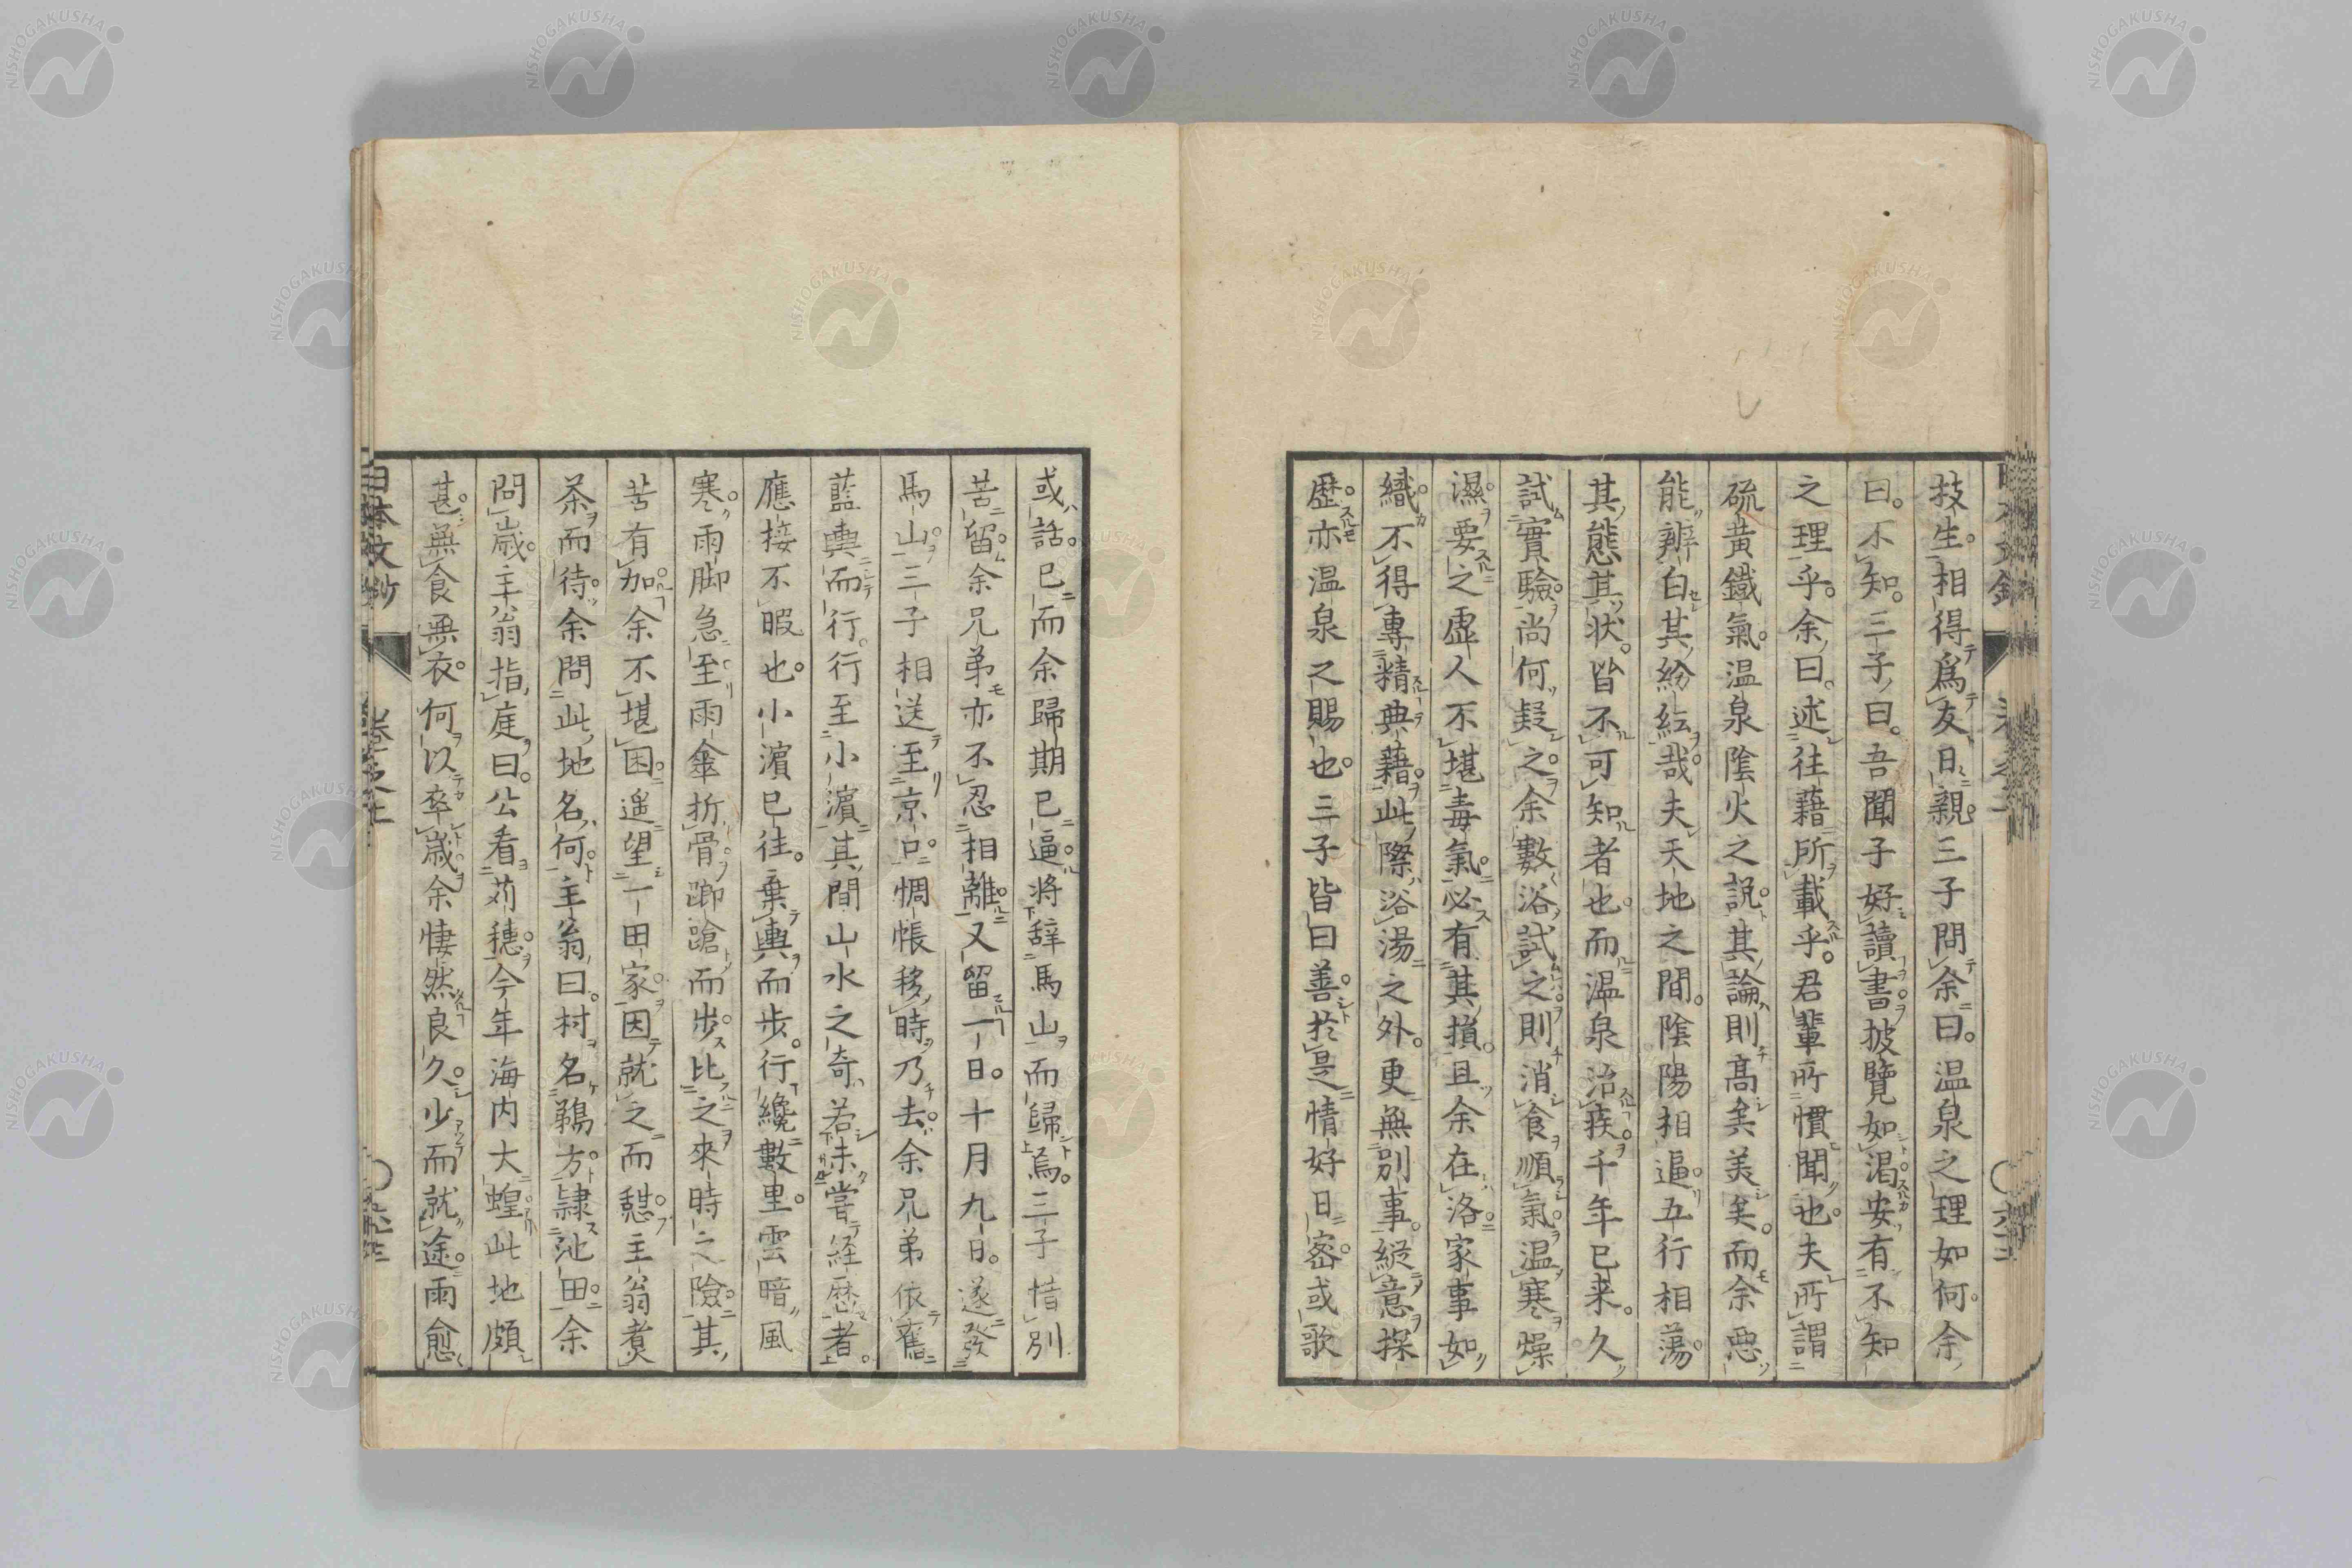 技生相得爲友日親三子問余曰温泉之理如何余
曰不知三子曰吾聞子好讀書披覽如渇安有不知
之理乎余曰述往藉所載乎君輩所慣聞也夫所謂
硫黄鐵氣温泉陰火之説其論則髙矣美矣而余惡
能辨白其紛紜哉夫天地之間陰陽相逼五行相蕩
其態其状皆不可知者也而温泉治疾千年已来久
試實驗尚何疑之余數浴試之則消食順氣温寒燥
濕要之虚人不堪毒氣必有其損且余在洛家事如
織不得專精典藉此際浴湯之外更無別事縦意探
歴亦温泉之賜也三子皆曰善於是情好日密或歌
或話已而余歸期已逼将辞馬山而歸焉三子惜別
苦留余兄弟亦不忍相離又留一日十月九日遂發
馬山三子相送至京口惆悵移時乃去余兄弟依舊
藍輿而行行至小濵其間山水之奇若未嘗経歴者
應接不暇也小濵已往棄輿而歩行纔數里雲暗風
寒雨脚急至雨傘折骨踟蹌而歩比之來時之險其
苦有加余不堪困遥望一田家因就之而憇主翁煮
茶而待余問此地名何主翁曰村名鵜方隷池田余
問歳主翁指庭曰公看苅穂今年海内大蝗此地頗
甚無食無衣何以卒歳余悽然良久少而就途雨愈
日本文鈔
巻之上
NISHOGAKUSHA